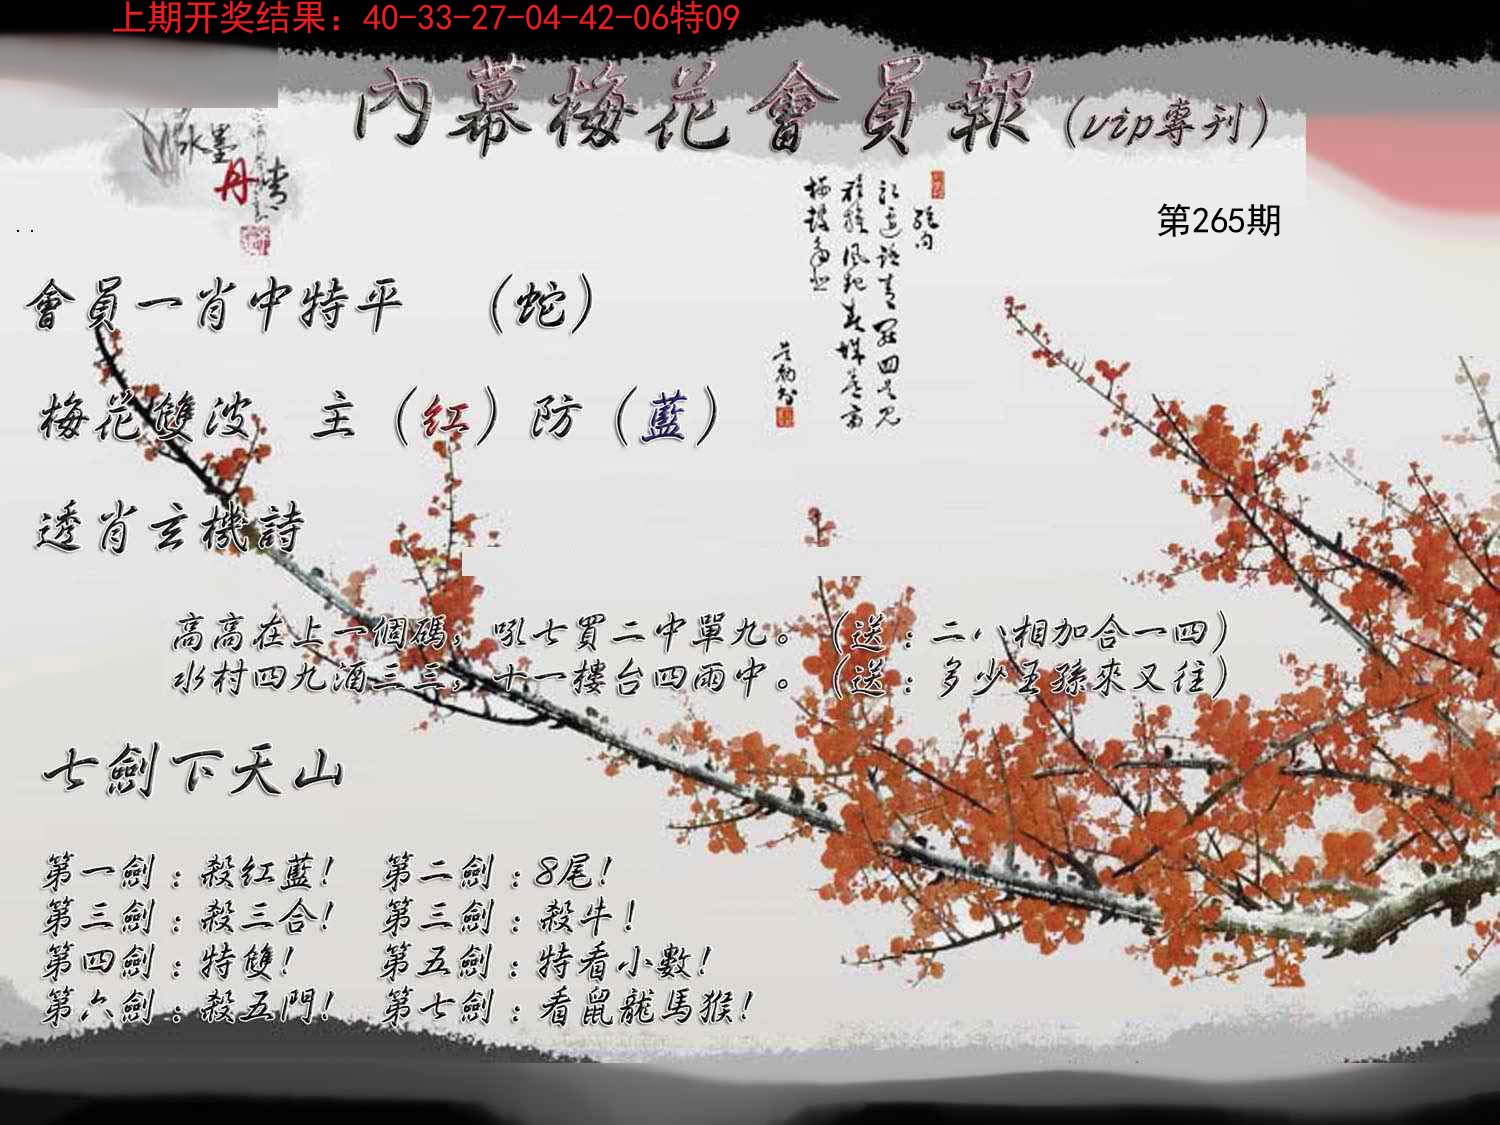 上期开奖结果：40-33-27-04-42-06特09
內幕梅花會員報（vip專刊）
水墨
丹情
第265期
會員一肖中特平 （蛇）
梅花雙波 主（紅）防（藍）
透肖玄機詩
高高在上一個碼，吼七買二中單九。（送：二八相加合一四）
水村四九酒三三，十一樓台四兩中。（送：多少王孫來又往）
七劍下天山
第一劍：殺紅藍！ 第二劍：8尾！
第三劍：殺三合！ 第三劍：殺牛！
第四劍：特雙！ 第五劍：特看小數！
第六劍：殺五門！ 第七劍：看鼠龍馬猴！